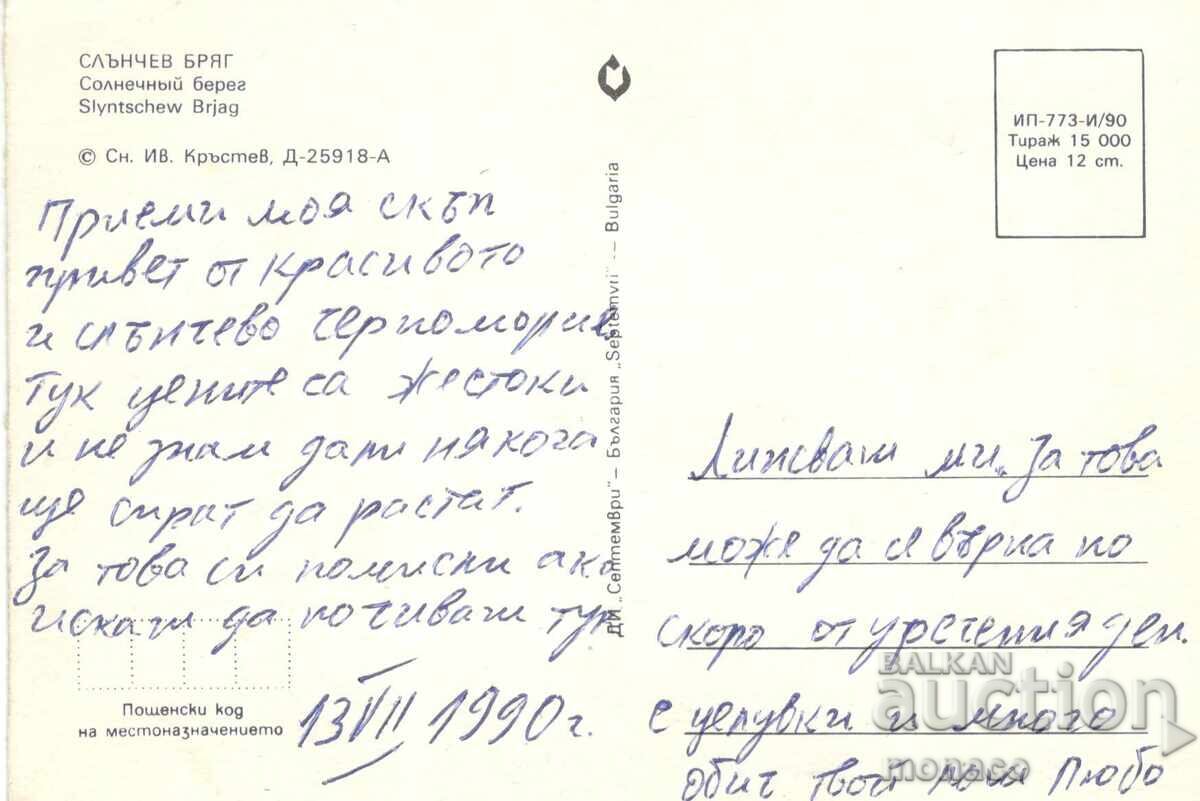 СЛЪНЧЕВ БРЯГ
Солнечный берег
Slyntschew Brjag
© Сн. Ив. Кръстев, Д-25918-А
ИП-773-И/90
Тираж 15 000
Цена 12 ст.
ДИ „Септември" – България „Septemvri" -- Bulgaria
Приеми моя скъп
привет от красивото
и слънчево черномория
Тук цените са жестоки
и не знам дали някога
ще спрат да растат.
За това си помисли ако
искаш да почиваш тук
13 VII 1990 г.
Пощенски код
на местоназначението
Липсваш ми за това
може да се върна по
скоро от уречения ден.
с целувки и много
обич твой Любо
BALKAN
auction
monaco